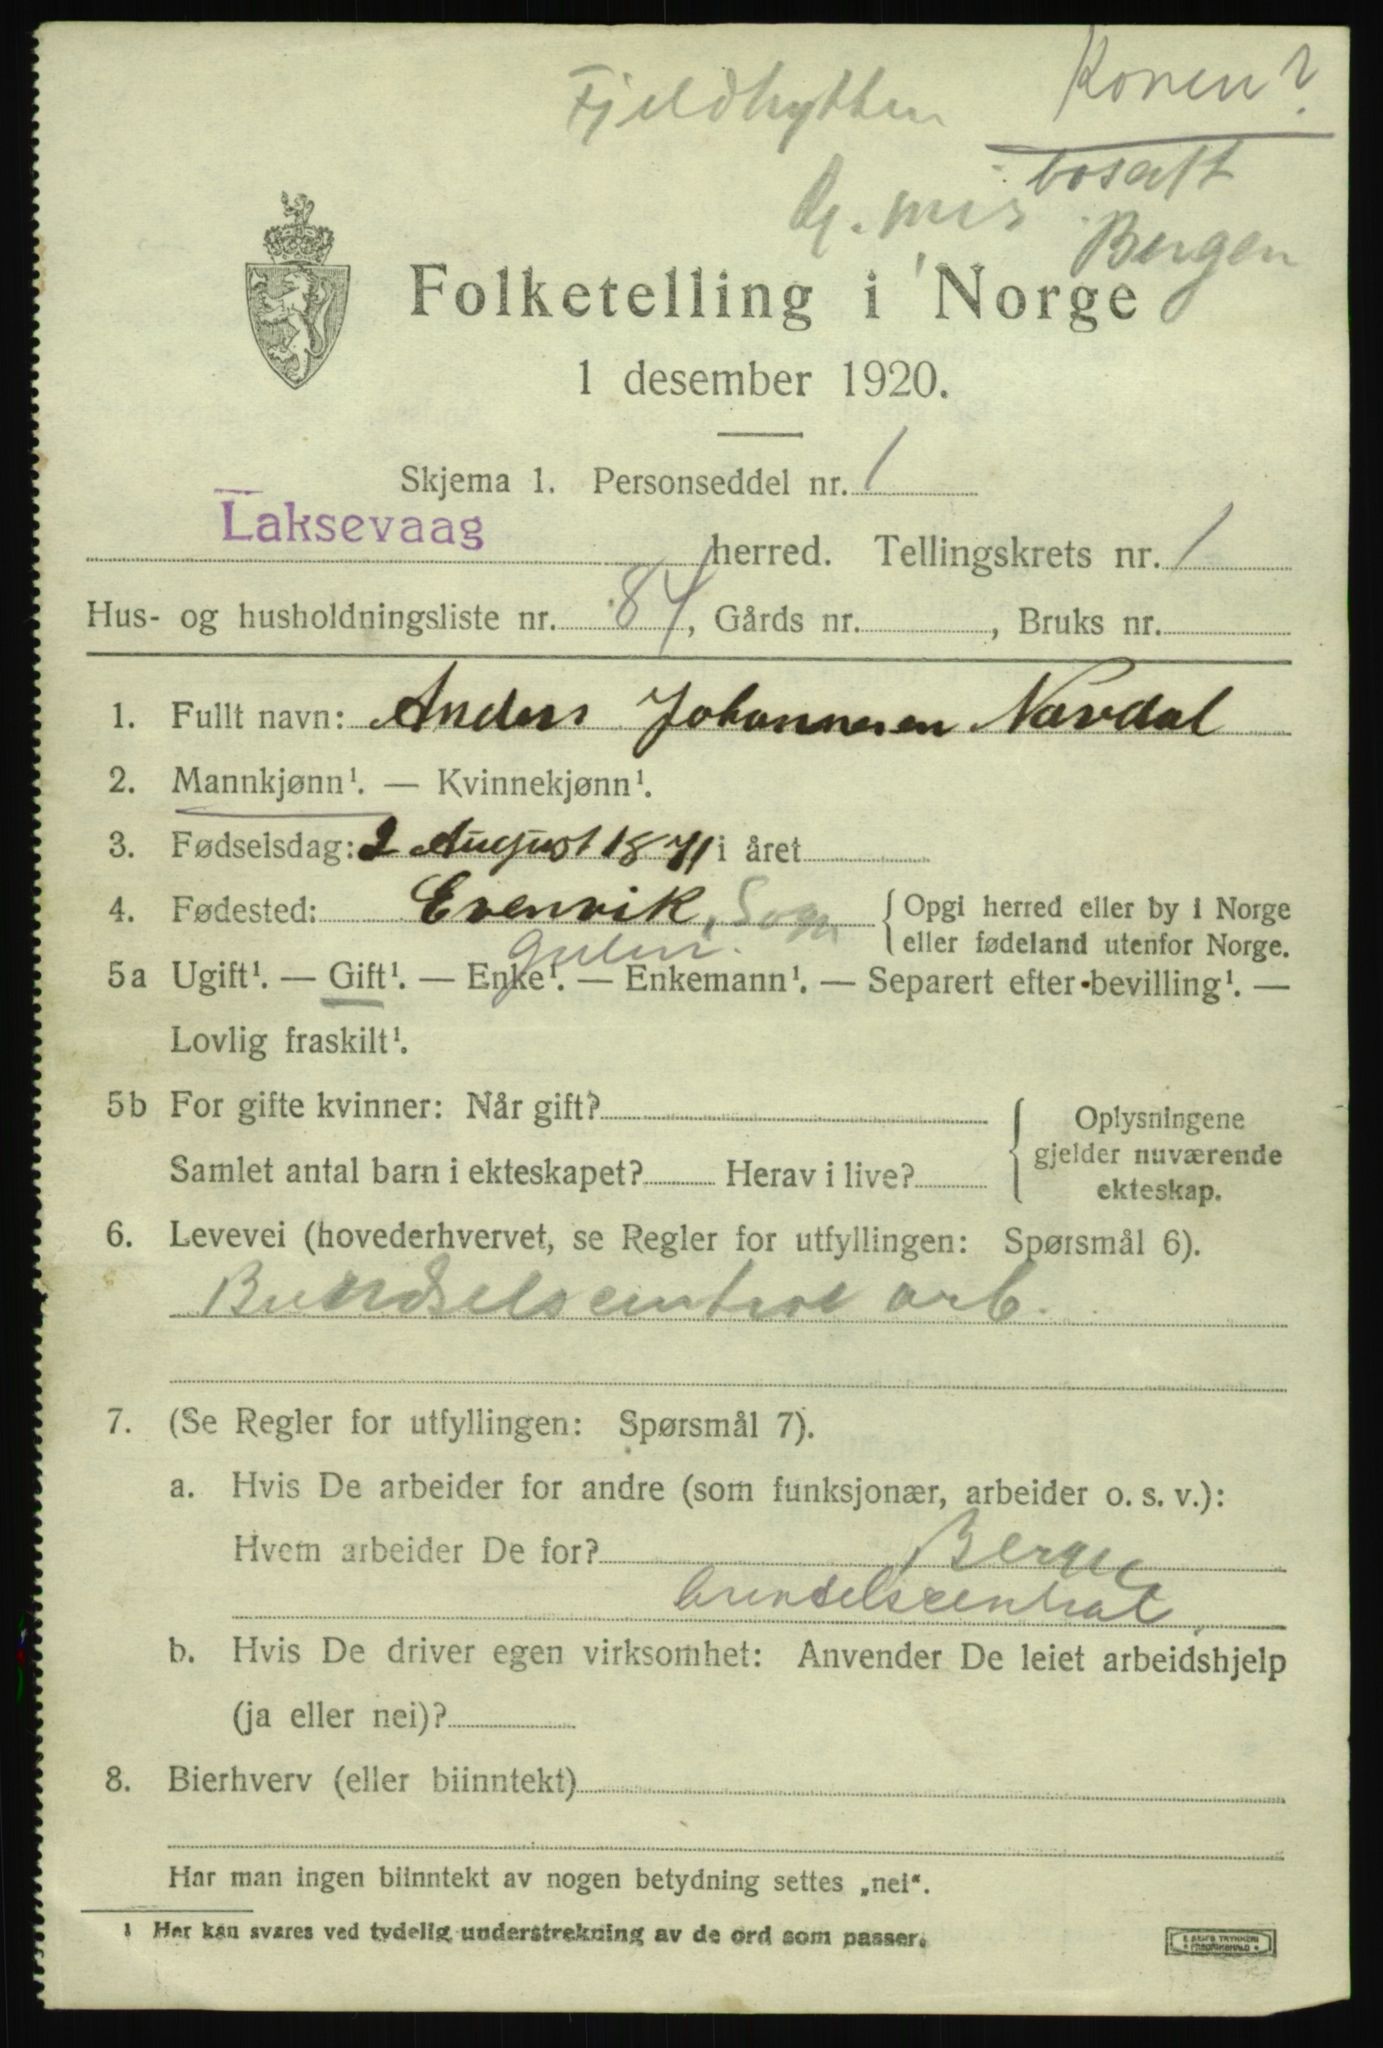 Fjeldhytten
Konen?
bosatt
Bergen
Folketelling i Norge
1 desember 1920.
Skjema 1. Personseddel nr. 1
Laksevaag herred. Tellingskrets nr. 1
Hus- og husholdningsliste nr. 84, Gårds nr. , Bruks nr.
1. Fullt navn: Anders Johannesen Nordal
2. Mannkjønn¹. — Kvinnekjønn¹.
3. Fødselsdag: 2 August 1871 i året
4. Fødested: Evenvik, Sogn { Opgi herred eller by i Norge
eller fødeland utenfor Norge.
Gulen.
5a Ugift¹. — Gift¹. — Enke¹. — Enkemann¹. — Separert efter bevilling¹. —
Lovlig fraskilt¹.
5b For gifte kvinner: Når gift?
Samlet antal barn i ekteskapet? Herav i live?
{ Oplysningene
gjelder nuværende
ekteskap.
6. Levevei (hovederhvervet, se Regler for utfyllingen: Spørsmål 6).
Brændselscentral arb.
7. (Se Regler for utfyllingen: Spørsmål 7).
a. Hvis De arbeider for andre (som funksjonær, arbeider o. s. v.):
Hvem arbeider De for? Berg
brendselscentral
b. Hvis De driver egen virksomhet: Anvender De leiet arbeidshjelp
(ja eller nei)?
8. Bierhverv (eller biinntekt)
Har man ingen biinntekt av nogen betydning settes „nei".
¹ Her kan svares ved tydelig understrekning av de ord som passer.